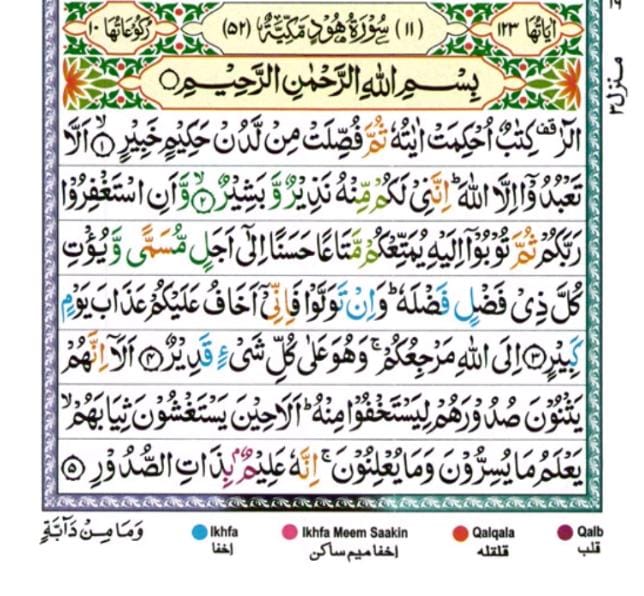 اٰيَاتُهَا ١٢٣ (١١) سُوْرَةُ هُوْدٍ مَكِّيَّةٌ (٥٢) رُكُوْعَاتُهَا ١٠
بِسْمِ اللهِ الرَّحْمٰنِ الرَّحِيْمِ
الٓرٰ قف كِتٰبٌ اُحْكِمَتْ اٰيٰتُهٗ ثُمَّ فُصِّلَتْ مِنْ لَّدُنْ حَكِيْمٍ خَبِيْرٍ ۙ﴿١﴾ اَلَّا
تَعْبُدُوْٓا اِلَّا اللهَ ؕ اِنَّنِيْ لَكُمْ مِّنْهُ نَذِيْرٌ وَّ بَشِيْرٌ ۙ﴿٢﴾ وَّ اَنِ اسْتَغْفِرُوْا
رَبَّكُمْ ثُمَّ تُوْبُوْٓا اِلَيْهِ يُمَتِّعْكُمْ مَّتَاعًا حَسَنًا اِلٰٓى اَجَلٍ مُّسَمًّى وَّ يُؤْتِ
كُلَّ ذِيْ فَضْلٍ فَضْلَهٗ ؕ وَ اِنْ تَوَلَّوْا فَاِنِّيْٓ اَخَافُ عَلَيْكُمْ عَذَابَ يَوْمٍ
كَبِيْرٍ ﴿٣﴾ اِلَى اللهِ مَرْجِعُكُمْ ۚ وَ هُوَ عَلٰى كُلِّ شَيْءٍ قَدِيْرٌ ﴿٤﴾ اَلَآ اِنَّهُمْ
يَثْنُوْنَ صُدُوْرَهُمْ لِيَسْتَخْفُوْا مِنْهُ ؕ اَلَا حِيْنَ يَسْتَغْشُوْنَ ثِيَابَهُمْ ۙ
يَعْلَمُ مَا يُسِرُّوْنَ وَ مَا يُعْلِنُوْنَ ۚ اِنَّهٗ عَلِيْمٌۢ بِذَاتِ الصُّدُوْرِ ﴿٥﴾
منزل ٣
وَمَا مِنْ دَآبَّةٍ
Ikhfa Ikhfa Meem Saakin Qalqala Qalb
اِخفا اِخفا میم ساکن قلقله قلب